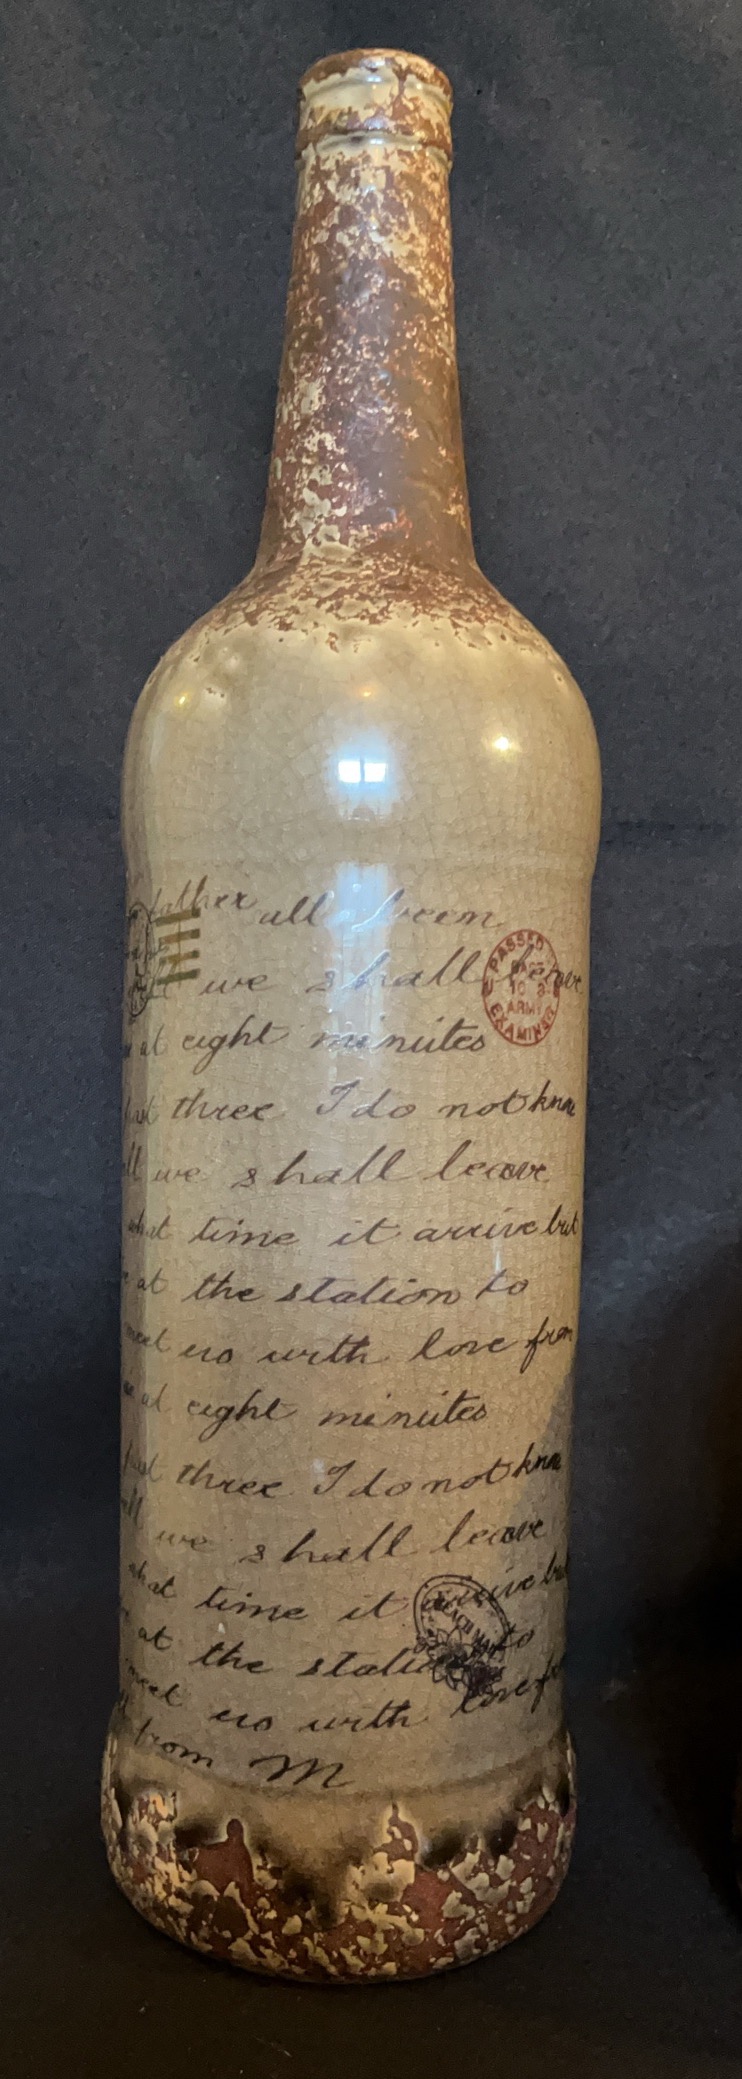 father all been
we shall leave
at eight minutes
three I do not know
all we shall leave
what time it arrive but
at the station to
meet us with love from
at eight minutes
three I do not know
we shall leave
what time it arrive but
at the station to
meet us with love
from M
PASSED
ARMY
EXAMINER